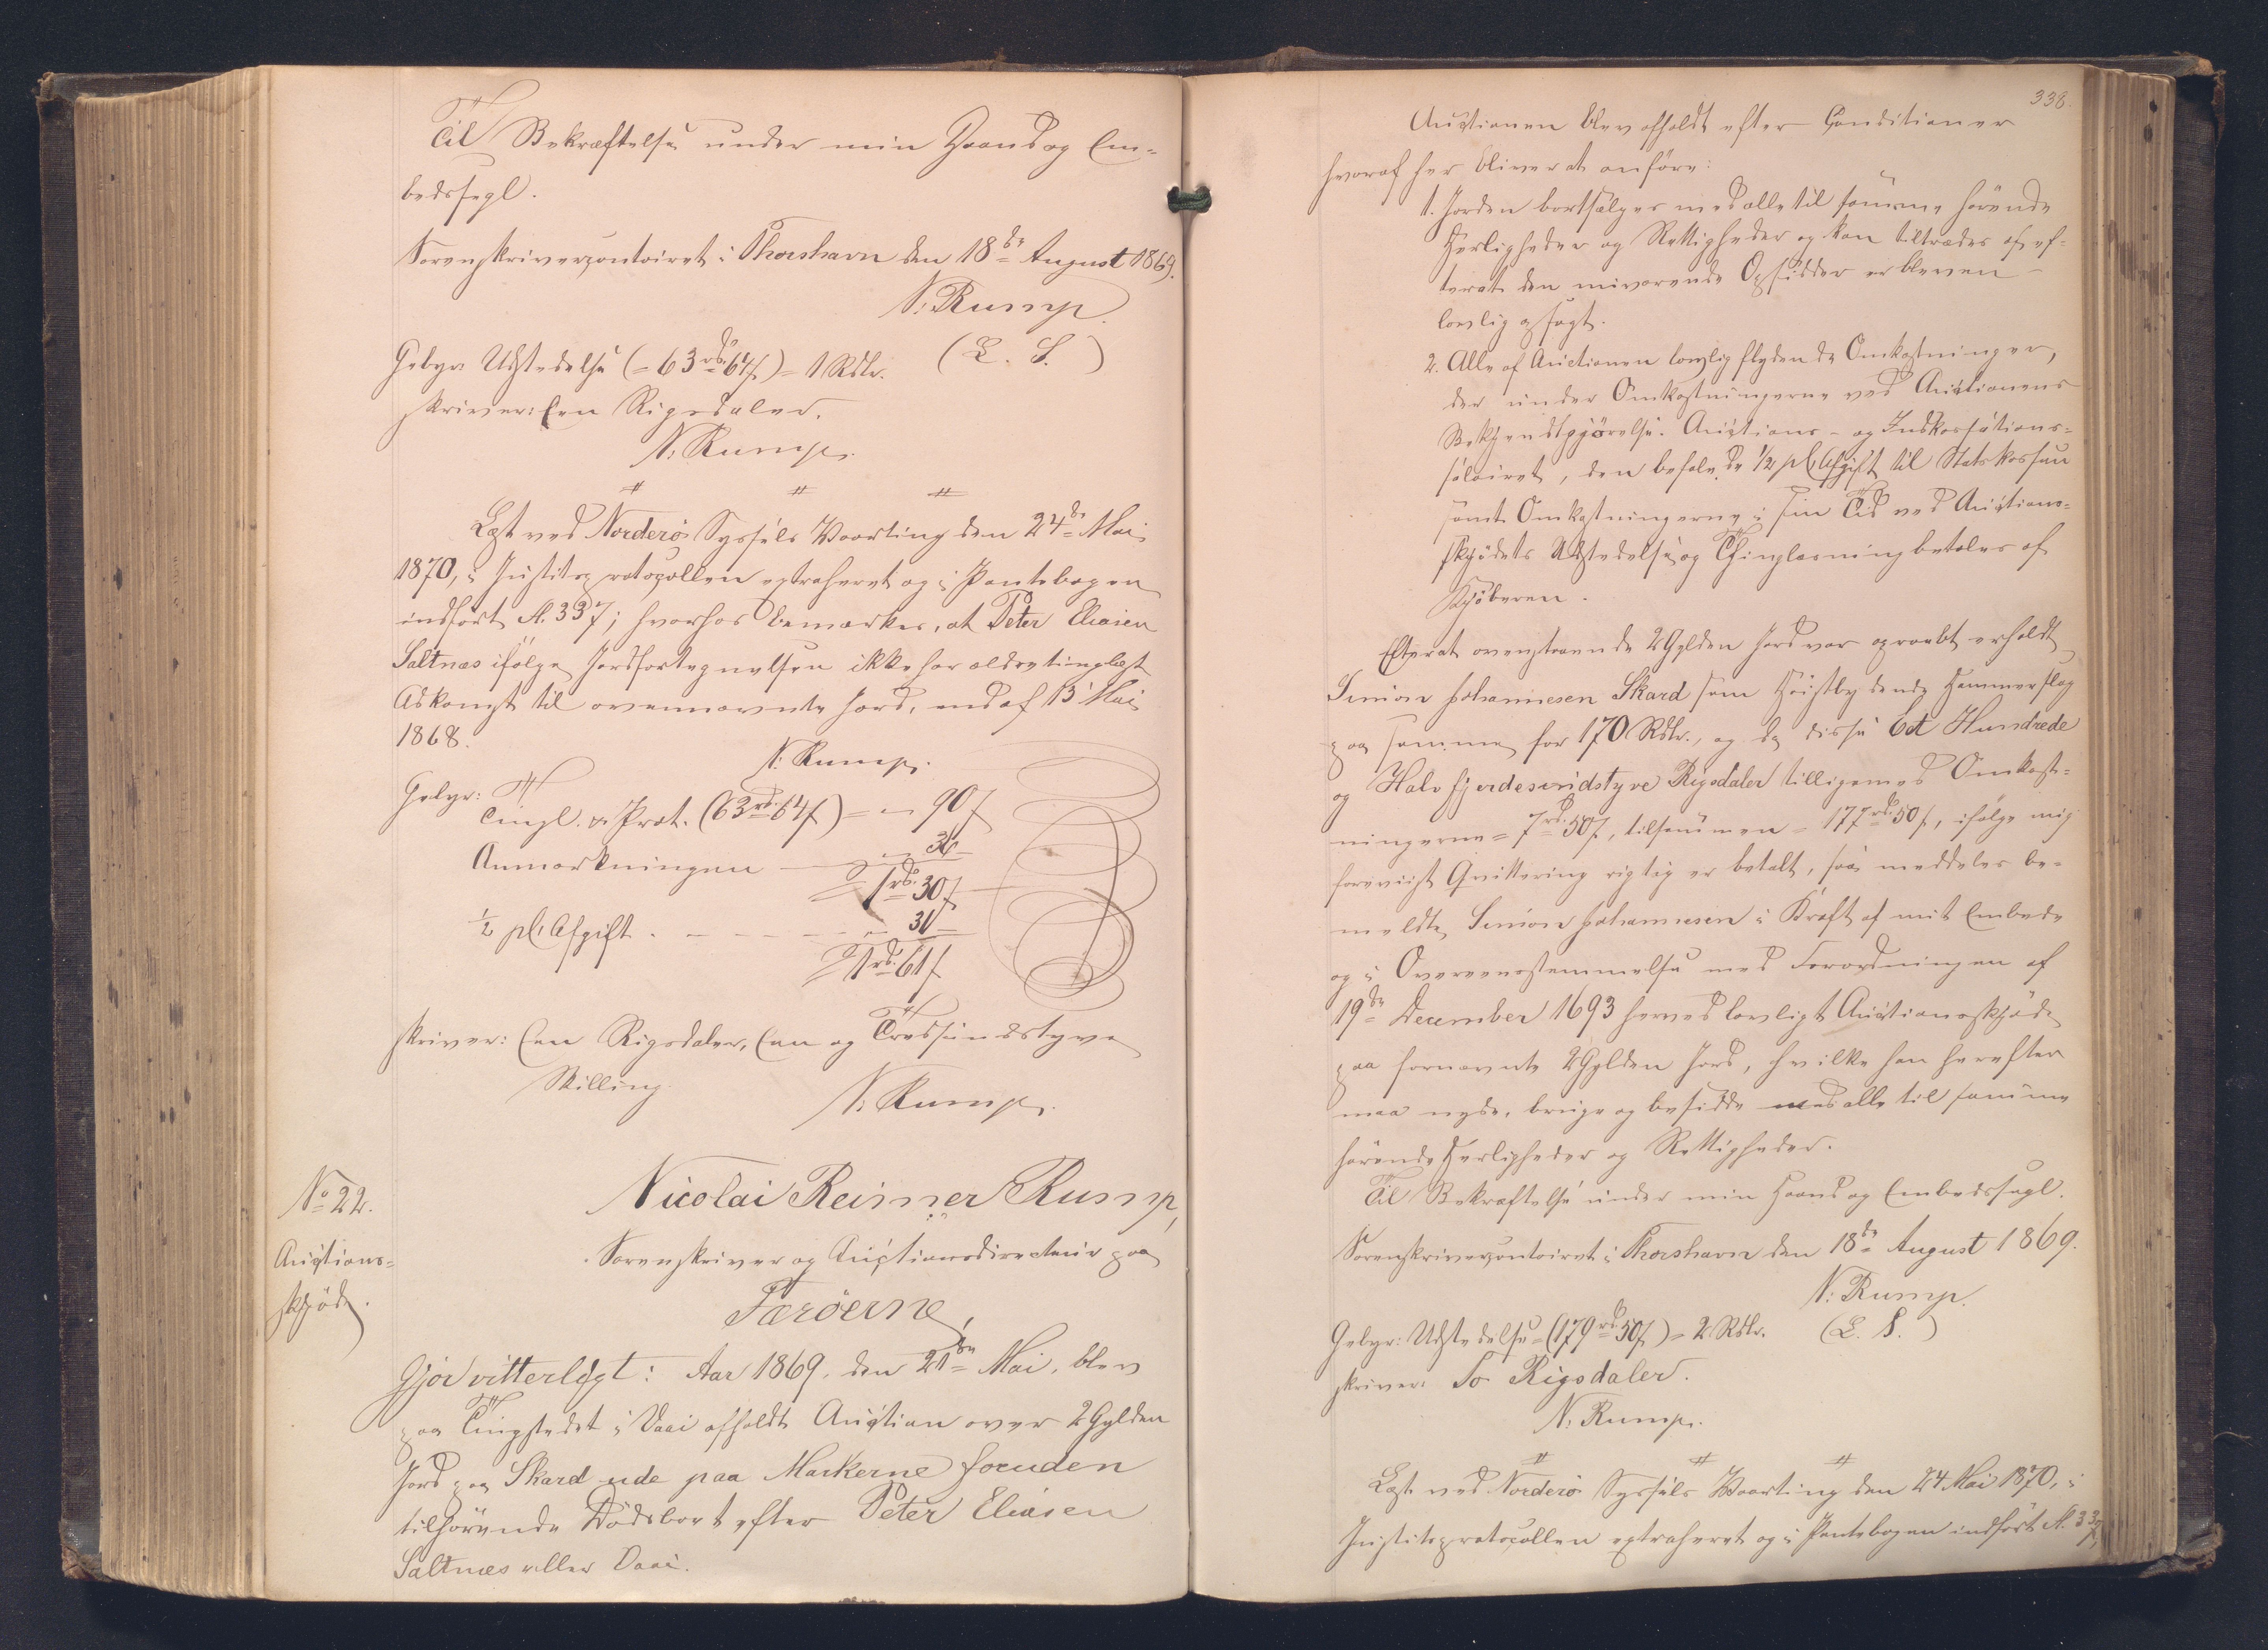 Til Bekræftelse under min Haand og Em-
bedssegl.
Sorenskrivercontoiret i Thorshavn den 18de August 1869.
N. Rump.
Gebyr: Udstedelse (= 63rd. 64ß) = 1 Rdlr. (L. S.)
skriver: Een Rigsdaler.
N. Rump.
Læst ved Norderø Syssels Vaarting den 24de Mai
1870, i Justitsprotocollen extraheret og i Pantebogen
indført fl. 337; hvorhos bemærkes, at Peter Eliasen
Saltnæs ifølge Jordfortegnelsen ikke har ældre tinglæst
Adkomst til ovennævnte Jord, end af 13 Mai
1868.
N. Rump.
Gebyr:
Tingl. & Prot. (63rd. 64ß) = „ 90ß
Anmærkningen — „ 36
1rd. 30ß
½ pCt. Afgift. — „ 31
1rd. 61ß
skriver: Een Rigsdaler, Een og Tredsindstyve
Skilling.
N. Rump.
No 22.
Auctions-
skjøde.
Nicolai Reimer Rump,
Sorenskriver og Auctionsdirecteur paa
Færöerne,
Gjör vitterligt: Aar 1869, den 21de Mai, blev
paa Tingstedet i Vaai afholdt Auction over 2 Gylden
Jord paa Skard ude paa Markerne foruden
tilhørende Dødsboet efter Peter Eliasen
Saltnæs eller Vaai.
338.
Auctionen blev afholdt efter Conditioner
hvoraf her bliver at anføre:
1. Jorden bortsælges med alle til samme hørende
Herligheder og Rettigheder og kan tiltrædes ef-
terat den nuværende Opsidder er bleven
lovlig opsagt.
2. Alle af Auctionen lovlig flydende Omkostninger,
der under Omkostningerne ved Auctionens
Bekjendtgjørelse. Auctions- og Indkassations-
salairet, den befalede ½ pCt. Afgift til Statskassen
samt Omkostningerne i sin Tid ved Auctions-
skjødets Udstedelse og Thinglæsning betales af
Kjøberen.
Efterat ovenstaaende 2 Gylden Jord var opraabt erholdt
Simon Johannesen Skard som Høistbydende Hammerslag
paa samme for 170 Rdlr., og da disse Et Hundrede
og Halvfjerdesindstyve Rigsdaler tilligemed Omkost-
ningerne = 7rd. 50ß, tilsammen = 177rd. 50ß, ifølge mig
foreviist Qvittering rigtig er betalt, saa meddeles be-
meldte Simon Johannesen i Kraft af mit Embede
og i Overeensstemmelse med Forordningen af
19de December 1693 herved lovligt Auctionsskjøde
paa fornævnte 2 Gylden Jord, hvilke han herefter
maa nyde, bruge og besidde med alle til samme
hørende Herligheder og Rettigheder.
Til Bekræftelse under min Haand og Embedssegl.
Sorenskrivercontoiret i Thorshavn den 18de August 1869.
N. Rump.
Gebyr: Udstedelse = (179rd. 50ß) = 2 Rdlr. (L. S.)
skriver: To Rigsdaler.
N. Rump.
Læst ved Norderø Syssels Vaarting den 24 Mai 1870, i
Justitsprotocollen extraheret og i Pantebogen indført fl. 337,